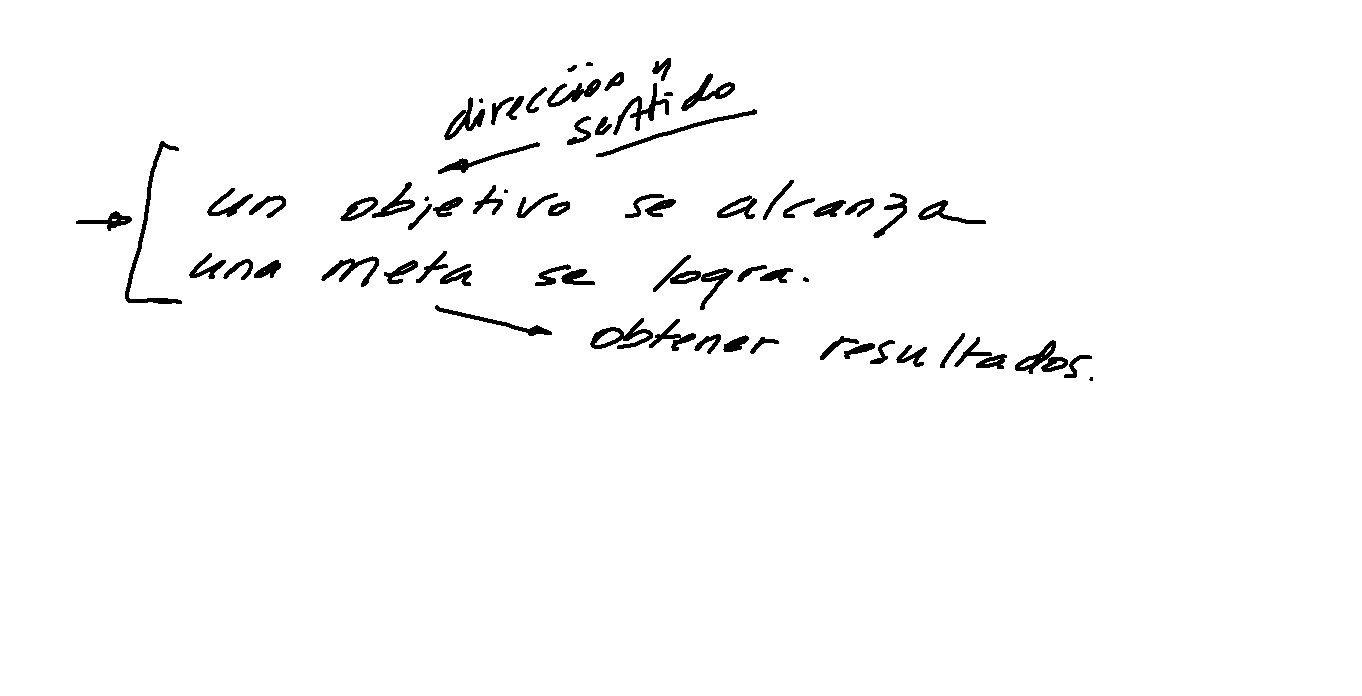 dirección y
sentido
un objetivo se alcanza
una meta se logra.
obtener resultados.